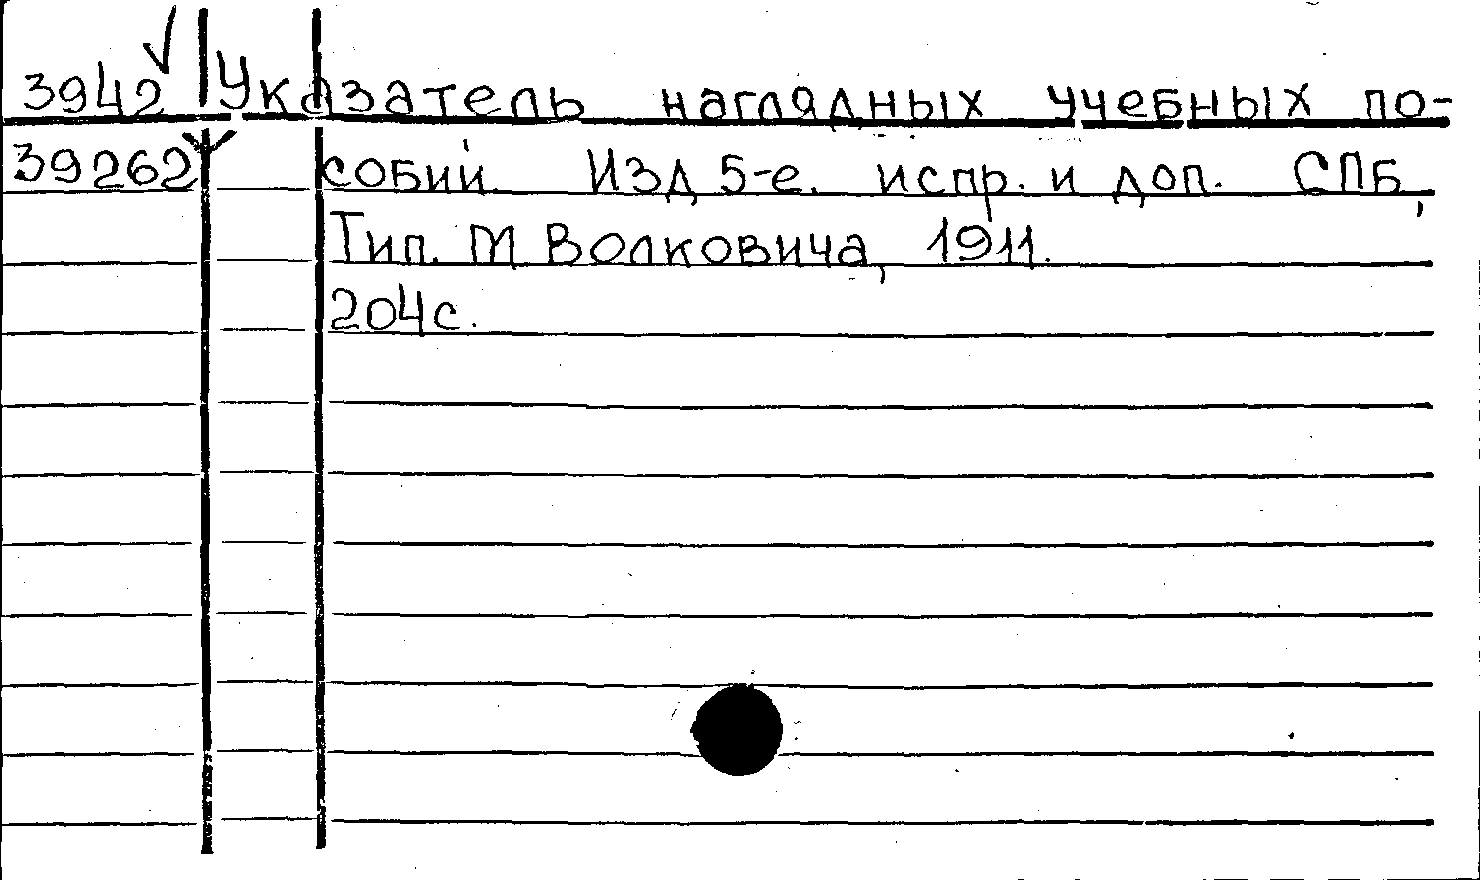 3942 Указатель наглядных учебных по-
39262 собий Изд 5-е. испр. и доп. СПБ,
Тип. М Волковича, 1911.
204с.